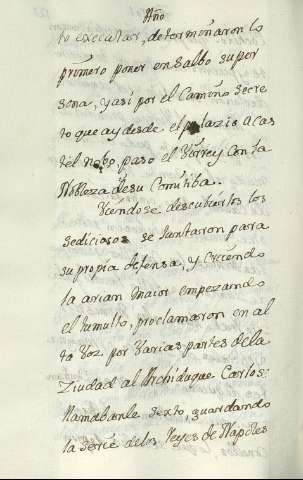 Año
to executar, determinaron lo
primero poner en salbo su per
sona, y así por el Camino secre
to que ay desde el palazio a cas
tel nobo, paso el Virrey con la
Nobleza de su Comitiba.
Viendose descubiertos los
sediciosos se juntaron para
su propia defensa, y creiendo
la arian maior empezando
el tumulto, proclamaron en al
ta Voz por Varias partes de la
Ziudad al Archiduque Carlos:
llamabanle sexto, guardando
la serie de los Reyes de Napoles